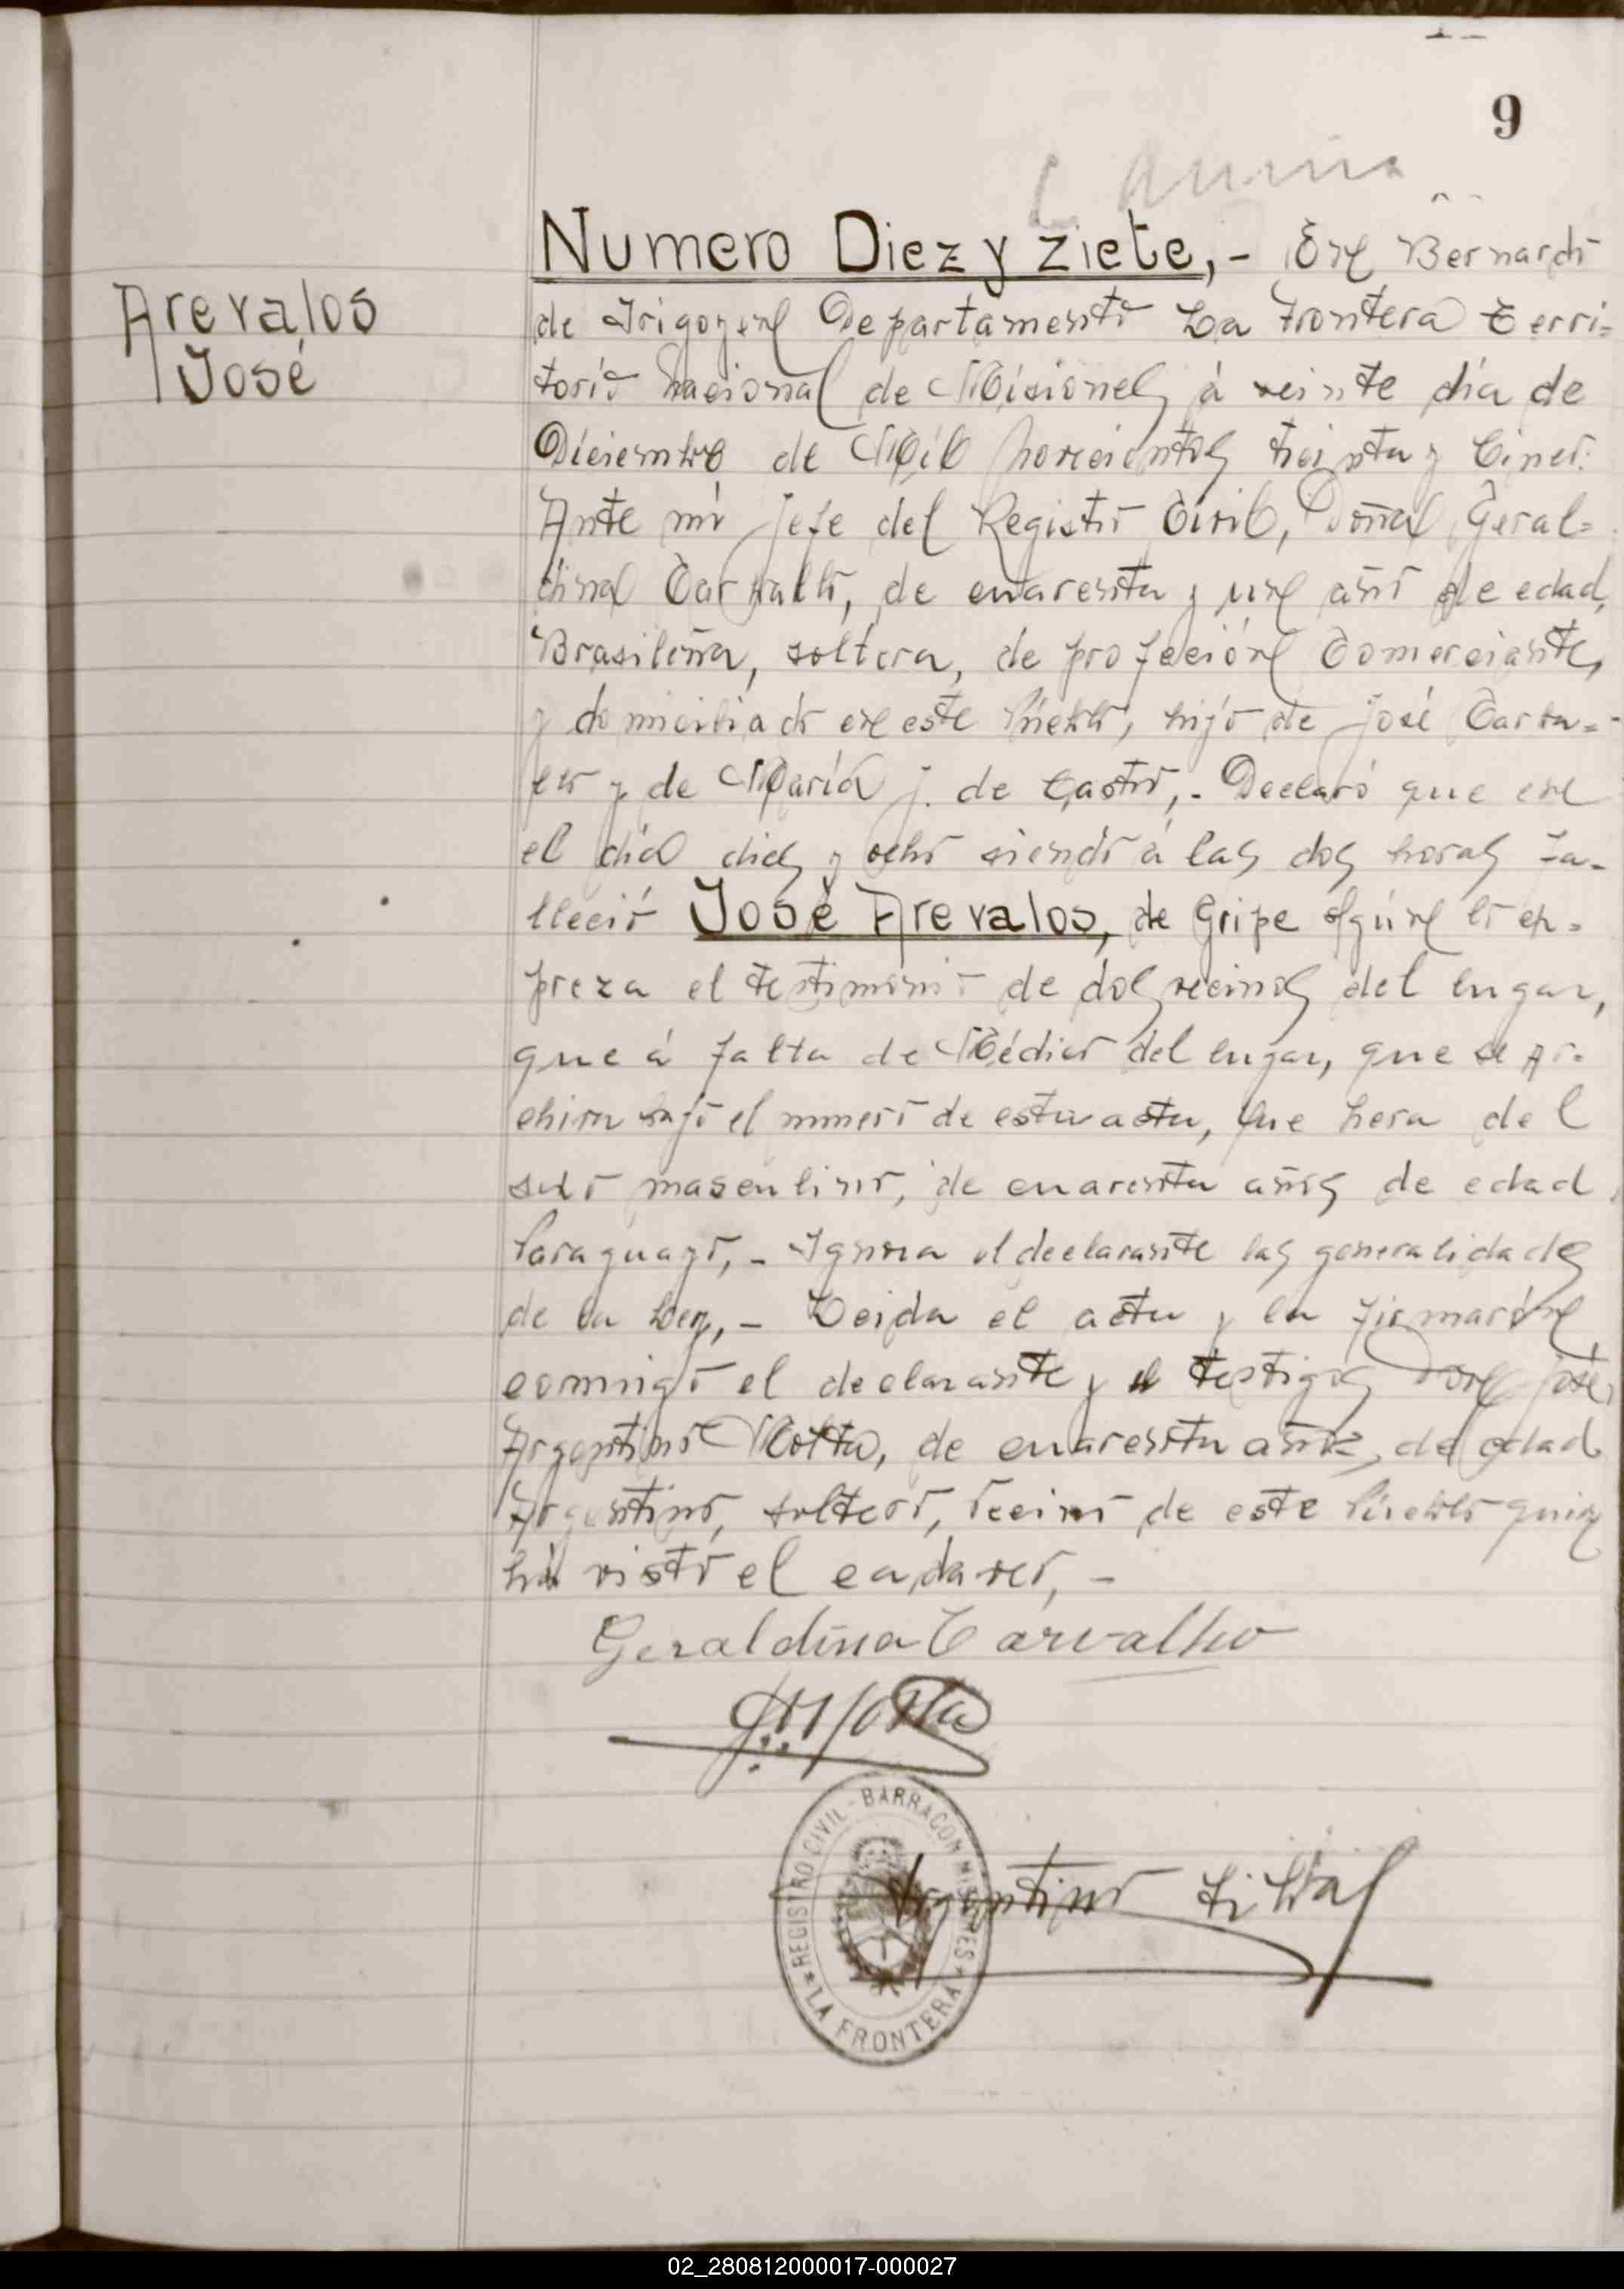 9
Numero Diez y ziete,- En Bernardo
Arevalos
José
de Irigoyen Departamento La Frontera Terri=
torio nacional de Misiones, á veinte dia de
Diciembre de Mil novecientos treinta y Cinco.
Ante mi Jefe del Registro Civil, Doña Geral=
dina Carvallo, de cuarenta y un año de edad,
Brasileña, soltera, de profeción Comerciante,
y domiciliado en este Pueblo, hijo de José
y de María J. de Castro,- Declaró que en
el día diez y ocho siendo á las dos horas fa-
lleció José Arevalos, de Gripe según lo ex=
preza el testimonio de dos vecinos del lugar,
que á falta de Médico del lugar, que se Ar-
chiva bajo el numero de esta acta, que hera del
sexo masculino, de cuarenta años de edad,
Paraguayo,- Ignora el declarante las generalidades
de la Ley,- Leida el acta y la firmarón
conmigo el declarante y el testigos Don José
Argentino Motta, de cuarenta años, de edad
Argentino, soltero, Vecino de este Pueblo quien
há visto el cadaver,-
Geraldina Carvalho
REGISTRO CIVIL - BARRACON MISIONES
* LA FRONTERA *
Argentino
02_280812000017-000027